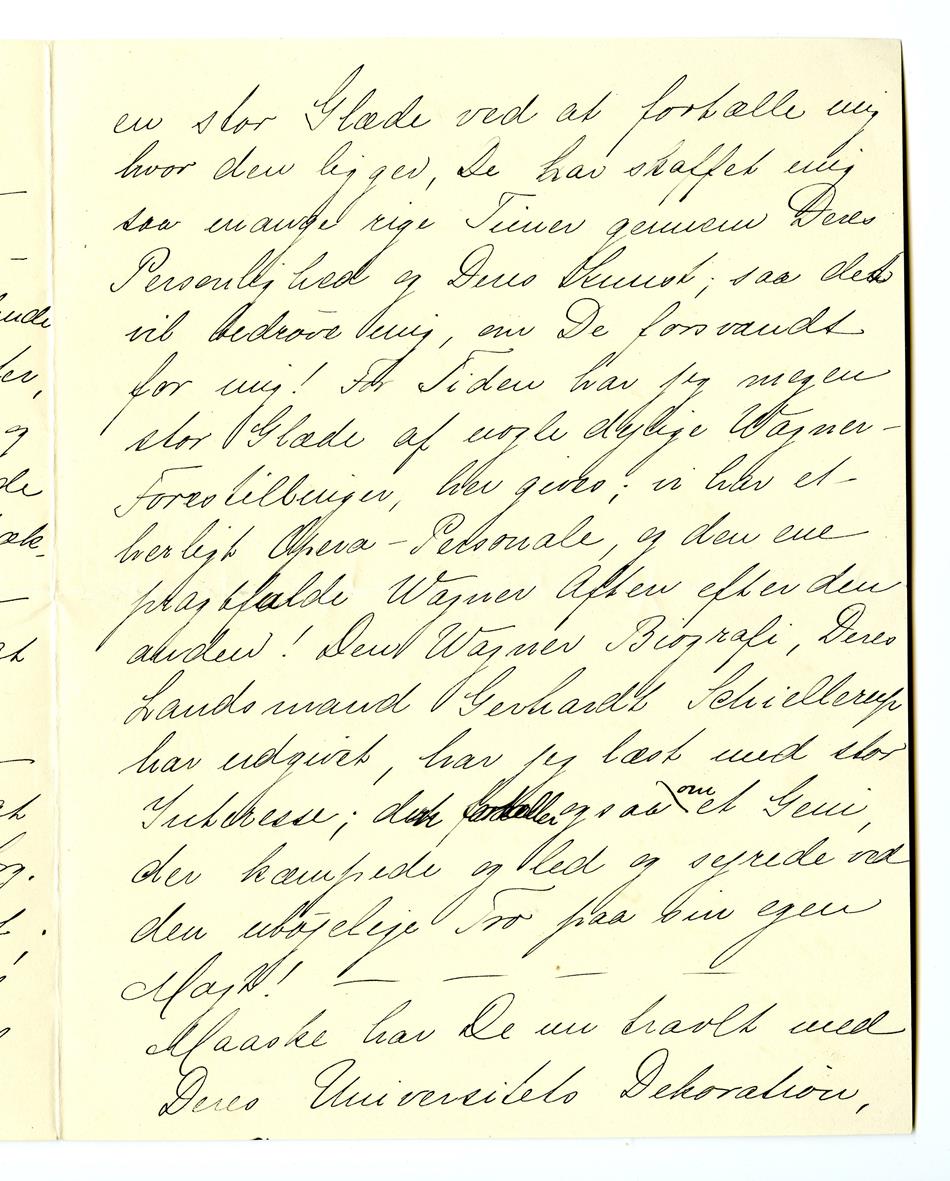 en stor Glæde ved at fortælle mig
hvor den ligger, De har skaffet mig
saa mange rige Timer gennem Deres
Personlighed og Deres Kunst; saa det
vil bedrøve mig, om De forsvandt
for mig! For Tiden har jeg megen
stor Glæde af nogle dejlige Wagner-
Forestillinger, her gives; vi har et
herligt Opera-Personale, og den ene
pragtfulde Wagner Aften efter den
anden! Den Wagner Biografi, Deres
Landsmand Gerhardt Schiellerup
har udgivet, har jeg læst med stor
Interesse; den fortæller ogsaa om et Geni,
der kæmpede og led og sejrede ved
den ubøjelige Tro paa sin egen
Magt! — — — —
Maaske har De nu travlt med
Deres Universitets Dekoration,
ude
er,
og
de
æk-
at
at
og.